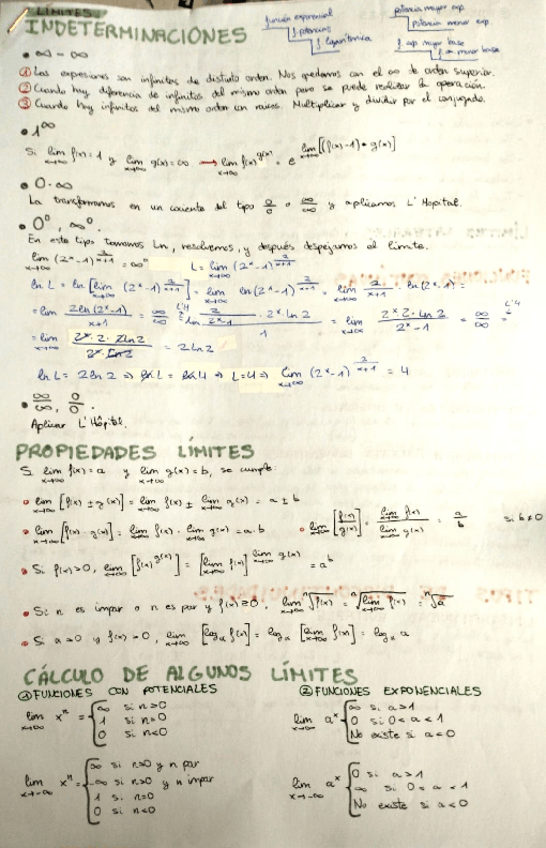 LÍMITES
INDETERMINACIONES
función exponencial
f. potencias
f. logarítmica
potencia mayor exp.
potencia menor exp.
f. exp mayor base
f. exp menor base
• ∞ - ∞
① Las expresiones son infinitos de distinto orden. Nos quedamos con el ∞ de orden superior.
② Cuando hay diferencia de infinitos del mismo orden pero se puede realizar la operación.
③ Cuando hay infinitos del mismo orden con raíces. Multiplicar y dividir por el conjugado.
• 1^∞
Si lim x→∞ f(x) = 1 y lim x→∞ g(x) = ∞ → lim x→∞ f(x)^g(x) = e^lim x→∞ [(f(x)-1) • g(x)]
• 0·∞
La transformamos en un cociente del tipo 0/0 o ∞/∞ y aplicamos L'Hopital.
• 0^0, ∞^0.
En este tipo tomamos Ln, resolvemos, y después despejamos el límite.
lim x→∞ (2^x - 1)^(2/(x+1)) = ∞^0 L = lim x→∞ (2^x - 1)^(2/(x+1))
ln L = ln [lim x→∞ (2^x - 1)^(2/(x+1))] = lim x→∞ ln (2^x - 1)^(2/(x+1)) = lim x→∞ 2/(x+1) · ln (2^x - 1) =
= lim x→∞ 2 ln (2^x - 1)/(x+1) = ∞/∞ L'H = lim 2/(2^x - 1) · 2^x · ln 2 / 1 = lim x→∞ 2·2^x · ln 2/(2^x - 1) = ∞/∞ L'H =
= lim x→∞ 2^x · 2 · 2 ln 2 / 2^x · ln 2 = 2 ln 2
ln L = 2 ln 2 ⇒ ln L = ln 4 ⇒ L = 4 ⇒ lim x→∞ (2^x - 1)^(2/(x+1)) = 4
• ∞/∞, 0/0.
Aplicar L'Hôpital.
PROPIEDADES LÍMITES
Si lim x→∞ f(x) = a y lim x→∞ g(x) = b, se cumple:
• lim x→∞ [f(x) ± g(x)] = lim x→∞ f(x) ± lim x→∞ g(x) = a ± b
• lim x→∞ [f(x) · g(x)] = lim x→∞ f(x) · lim x→∞ g(x) = a·b • lim x→∞ [f(x)/g(x)] = lim x→∞ f(x) / lim x→∞ g(x) = a/b si b ≠ 0
• Si f(x) > 0, lim x→∞ [f(x)^g(x)] = [lim x→∞ f(x)]^lim x→∞ g(x) = a^b
• Si n es impar o n es par y f(x) ≥ 0, lim x→∞ ⁿ√f(x) = ⁿ√lim x→∞ f(x) = ⁿ√a
• Si a > 0 y f(x) > 0, lim x→∞ [log_a f(x)] = log_a [lim x→∞ f(x)] = log_a a
CÁLCULO DE ALGUNOS LÍMITES
① FUNCIONES CON POTENCIALES
lim x→∞ x^n = { ∞ si n>0
1 si n=0
0 si n<0
lim x→-∞ x^n = { ∞ si n>0 y n par
-∞ si n>0 y n impar
1 si n=0
0 si n<0
② FUNCIONES EXPONENCIALES
lim x→∞ a^x { ∞ si a>1
0 si 0<a<1
No existe si a<0
lim x→-∞ a^x { 0 si a>1
∞ si 0<a<1
No existe si a<0